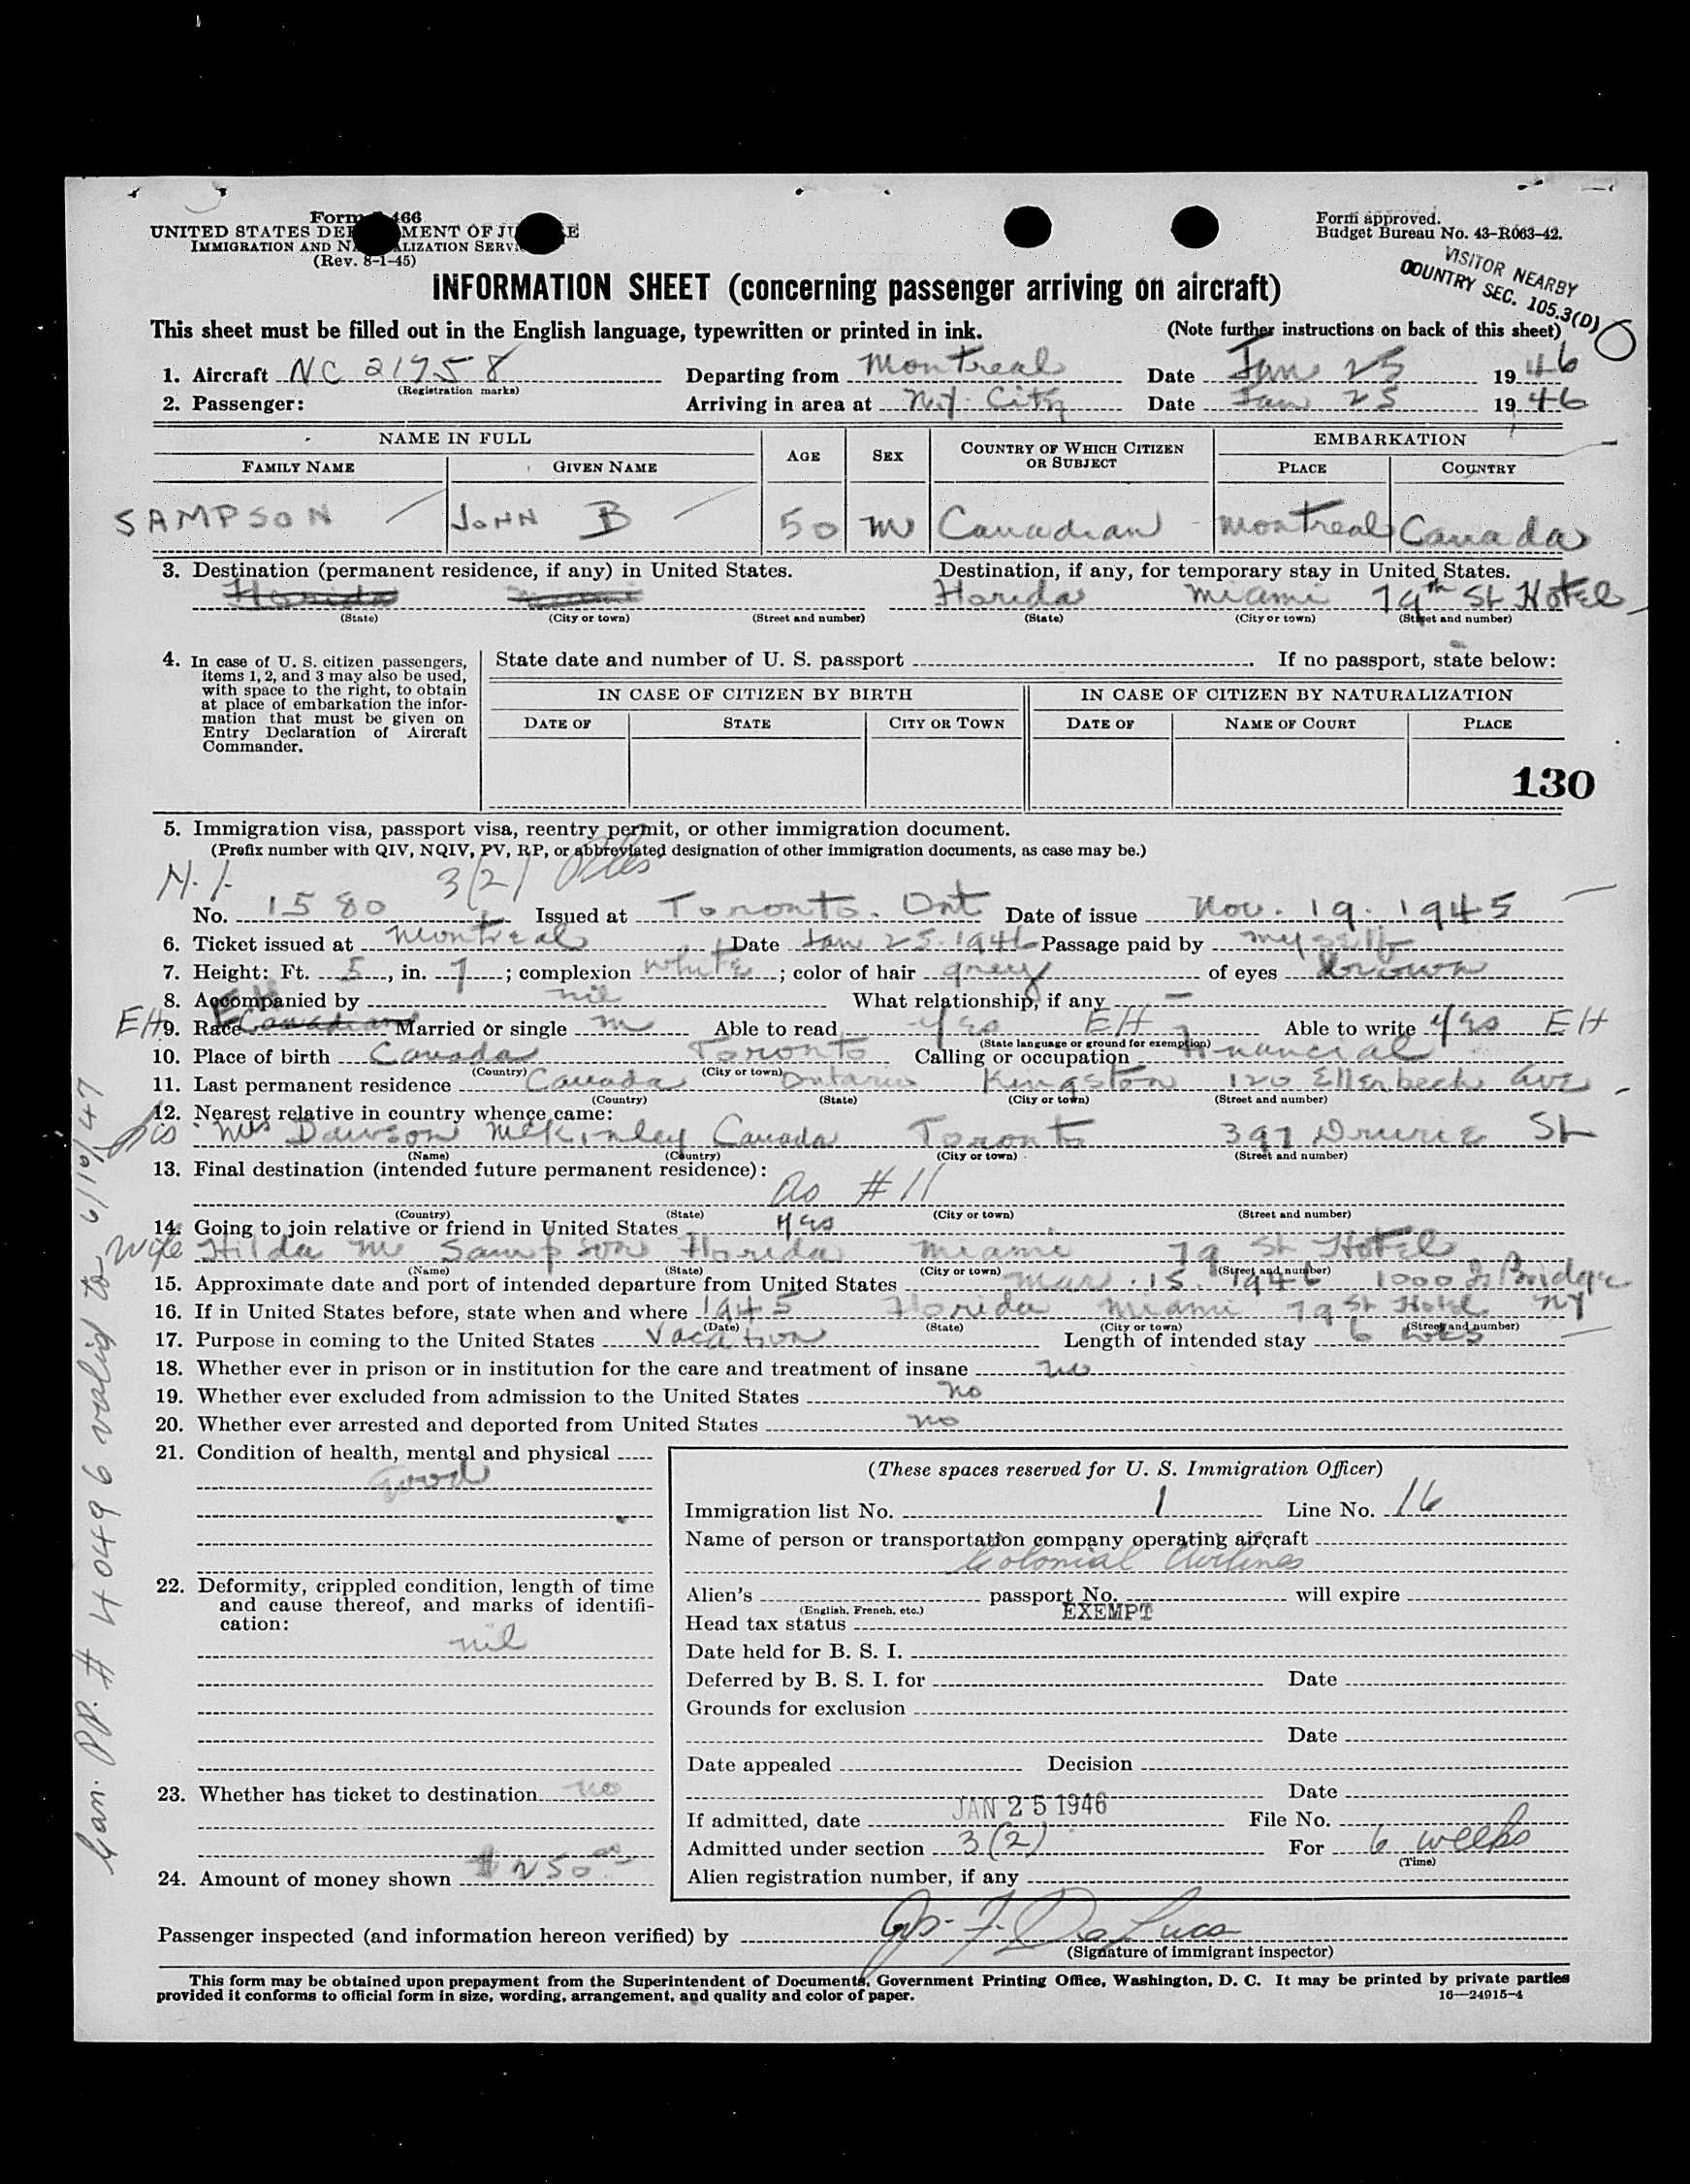 Form 466
UNITED STATES DEPARTMENT OF JUSTICE
IMMIGRATION AND NATURALIZATION SERVICE
(Rev. 8-1-45)
Form approved.
Budget Bureau No. 43-R063-42.
VISITOR NEARBY
COUNTRY SEC. 105.3(D)
INFORMATION SHEET (concerning passenger arriving on aircraft)
This sheet must be filled out in the English language, typewritten or printed in ink. (Note further instructions on back of this sheet)
1. Aircraft NC 21758 Departing from Montreal Date Jan 25 1946
(Registration marks)
2. Passenger: Arriving in area at N.Y. City Date Jan 25 1946
NAME IN FULL AGE SEX COUNTRY OF WHICH CITIZEN OR SUBJECT EMBARKATION
FAMILY NAME GIVEN NAME PLACE COUNTRY
SAMPSON JOHN B 50 M Canadian Montreal Canada
3. Destination (permanent residence, if any) in United States. Destination, if any, for temporary stay in United States.
Florida Miami Florida Miami 79th St Hotel
(State) (City or town) (Street and number) (State) (City or town) (Street and number)
4. In case of U. S. citizen passengers, items 1, 2, and 3 may also be used, with space to the right, to obtain at place of embarkation the information that must be given on Entry Declaration of Aircraft Commander.
State date and number of U. S. passport If no passport, state below:
IN CASE OF CITIZEN BY BIRTH IN CASE OF CITIZEN BY NATURALIZATION
DATE OF STATE CITY OR TOWN DATE OF NAME OF COURT PLACE
130
5. Immigration visa, passport visa, reentry permit, or other immigration document.
(Prefix number with QIV, NQIV, PV, RP, or abbreviated designation of other immigration documents, as case may be.)
3(2)
No. 1580 Issued at Toronto. Ont Date of issue Nov. 19. 1945
6. Ticket issued at Montreal Date Jan 25. 1946 Passage paid by myself
7. Height: Ft. 5, in. 7; complexion White; color of hair grey of eyes brown
8. Accompanied by nil What relationship, if any –
EH 9. Race Canadian EH Married or single m Able to read yes EH Able to write yes EH
(State language or ground for exemption)
10. Place of birth Canada Toronto Calling or occupation Financial
(Country) (City or town)
11. Last permanent residence Canada Ontario Kingston 120 Ellerbeck Ave
(Country) (State) (City or town) (Street and number)
12. Nearest relative in country whence came:
sis Mrs Dawson McKinley Canada Toronto 397 Drurie St
(Name) (Country) (City or town) (Street and number)
13. Final destination (intended future permanent residence):
as #11
(Country) (State) (City or town) (Street and number)
14. Going to join relative or friend in United States yes
wife Hilda M Sampson Florida Miami 79 St Hotel
(Name) (State) (City or town) (Street and number)
15. Approximate date and port of intended departure from United States Mar. 15. 1946 1000 Is Bridge
16. If in United States before, state when and where 1945 Florida Miami 79 St Hotel NY
(Date) (State) (City or town) (Street and number)
17. Purpose in coming to the United States Vacation Length of intended stay 6 wks
18. Whether ever in prison or in institution for the care and treatment of insane no
19. Whether ever excluded from admission to the United States no
20. Whether ever arrested and deported from United States no
21. Condition of health, mental and physical
Good
22. Deformity, crippled condition, length of time
and cause thereof, and marks of identifi-
cation:
nil
23. Whether has ticket to destination no
24. Amount of money shown $250.00
(These spaces reserved for U. S. Immigration Officer)
Immigration list No. 1 Line No. 16
Name of person or transportation company operating aircraft
Colonial Airlines
Alien's passport No. will expire
(English, French, etc.)
Head tax status EXEMPT
Date held for B. S. I.
Deferred by B. S. I. for Date
Grounds for exclusion
Date
Date appealed Decision
Date
If admitted, date JAN 25 1946 File No.
Admitted under section 3(2) For 6 weeks
(Time)
Alien registration number, if any
Passenger inspected (and information hereon verified) by Jos. F. De Luca
(Signature of immigrant inspector)
This form may be obtained upon prepayment from the Superintendent of Documents, Government Printing Office, Washington, D. C. It may be printed by private parties
provided it conforms to official form in size, wording, arrangement, and quality and color of paper.
16—24915-4
Can. PP. # 40496 valid to 6/19/47